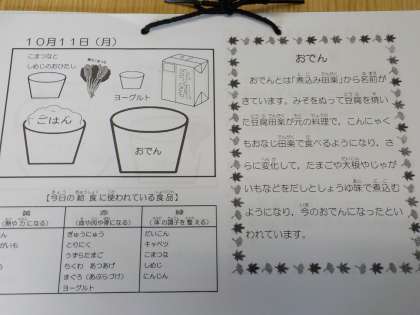 10月11日（月）
こまつなと
しめじのおひたし
ヨーグルト
ごはん
おでん
【今日の給食に使われている食品】
黄 赤 緑
(熱や力になる) (血や肉や骨になる) (体の調子を整える)
ぎゅうにゅう だいこん
とりにく キャベツ
うずらたまご こまつな
ちくわ あつあげ しめじ
まぐろ（あぶらづけ） にんじん
ヨーグルト
おでん
おでんとは「煮込み田楽」から名前が
きています。みそをぬって豆腐を焼い
た豆腐田楽が元の料理で、こんにゃく
もおなじ田楽で食べるようになり、さ
らに変化して、たまごや大根やじゃが
いもなどをだしとしょうゆ味で煮込む
ようになり、今のおでんになったとい
われています。